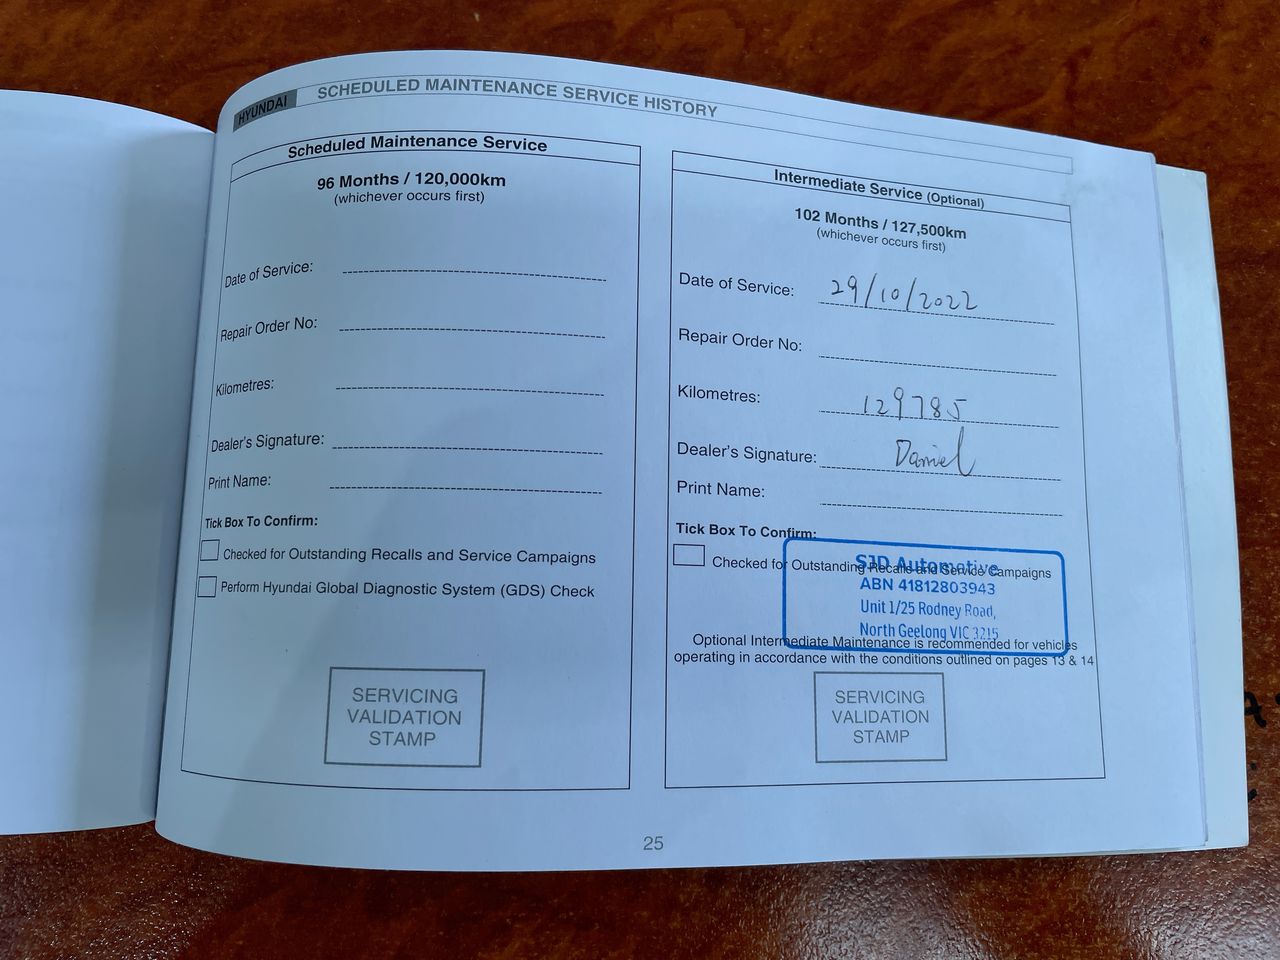 HYUNDAI SCHEDULED MAINTENANCE SERVICE HISTORY
Scheduled Maintenance Service
96 Months / 120,000km
(whichever occurs first)
Date of Service:
Repair Order No:
Kilometres:
Dealer's Signature:
Print Name:
Tick Box To Confirm:
Checked for Outstanding Recalls and Service Campaigns
Perform Hyundai Global Diagnostic System (GDS) Check
SERVICING
VALIDATION
STAMP
Intermediate Service (Optional)
102 Months / 127,500km
(whichever occurs first)
Date of Service: 29/10/2022
Repair Order No:
Kilometres: 129785
Dealer's Signature: Daniel
Print Name:
Tick Box To Confirm:
Checked for Outstanding Recalls and Service Campaigns
SJD Automotive
ABN 41812803943
Unit 1/25 Rodney Road,
North Geelong VIC 3215
Optional Intermediate Maintenance is recommended for vehicles
operating in accordance with the conditions outlined on pages 13 & 14
SERVICING
VALIDATION
STAMP
25